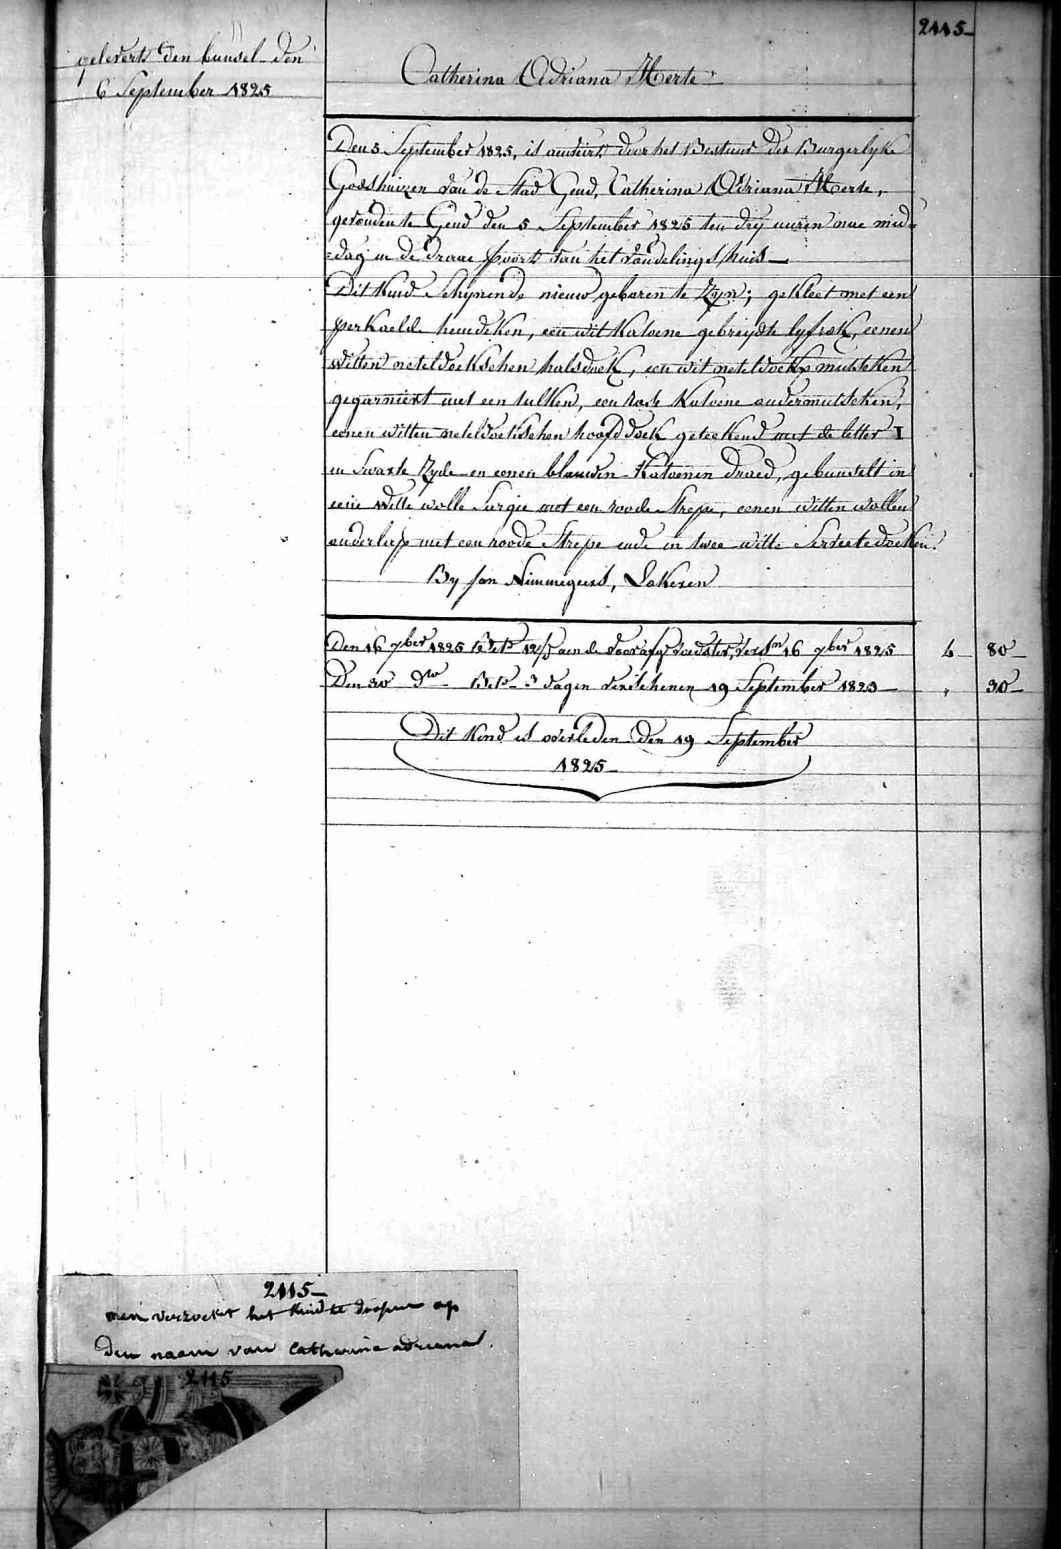 2115
gelevert den bunsel den
6 September 1825
Catherina Adriana Merte
Den 5 September 1825, is aenveirt door het Bestuur der Burgerlyke
Godshuizen van de Stad Gend, Catherina Adriana Merte,
gevonden te Gend den 5 September 1825 ten dry uuren nae mid=
=dag in de draae poort van het vondelingshuis
Dit Kind Schynende nieuw geboren te Zyn; gekleet met een
perkaelde hemdeken, een wit Katoene gebreyde lyfrok, eenen
witten neteldoekschen halsdoek, een wit neteldoeks mutsken
gegarniert met een tulken, een rosh Katoene ondermutsken,
eenen witten neteldoekschen hoofddoek geteekend met de letter I
in Swarte Zyde en eenen blauwen Katoenen draed, gebunselt in
eene witte wolle Sargie met een roode Strepe, eenen witten wollen
onderleep met een roode Strepe ende in twee witte Servietedoeken.
By Jan Nimmegeers, Lokeren
Den 16 7ber 1825 12/5 aen de voorafg Voedster, 16 7ber 1825 6 80
Den 30 do 3 dagen verschenen 19 September 1825 " 30
Dit Kind is overleden den 19 September
1825
2115
men verzoekt het Kind te doopen op
den naem van Catherine adriena.
2115